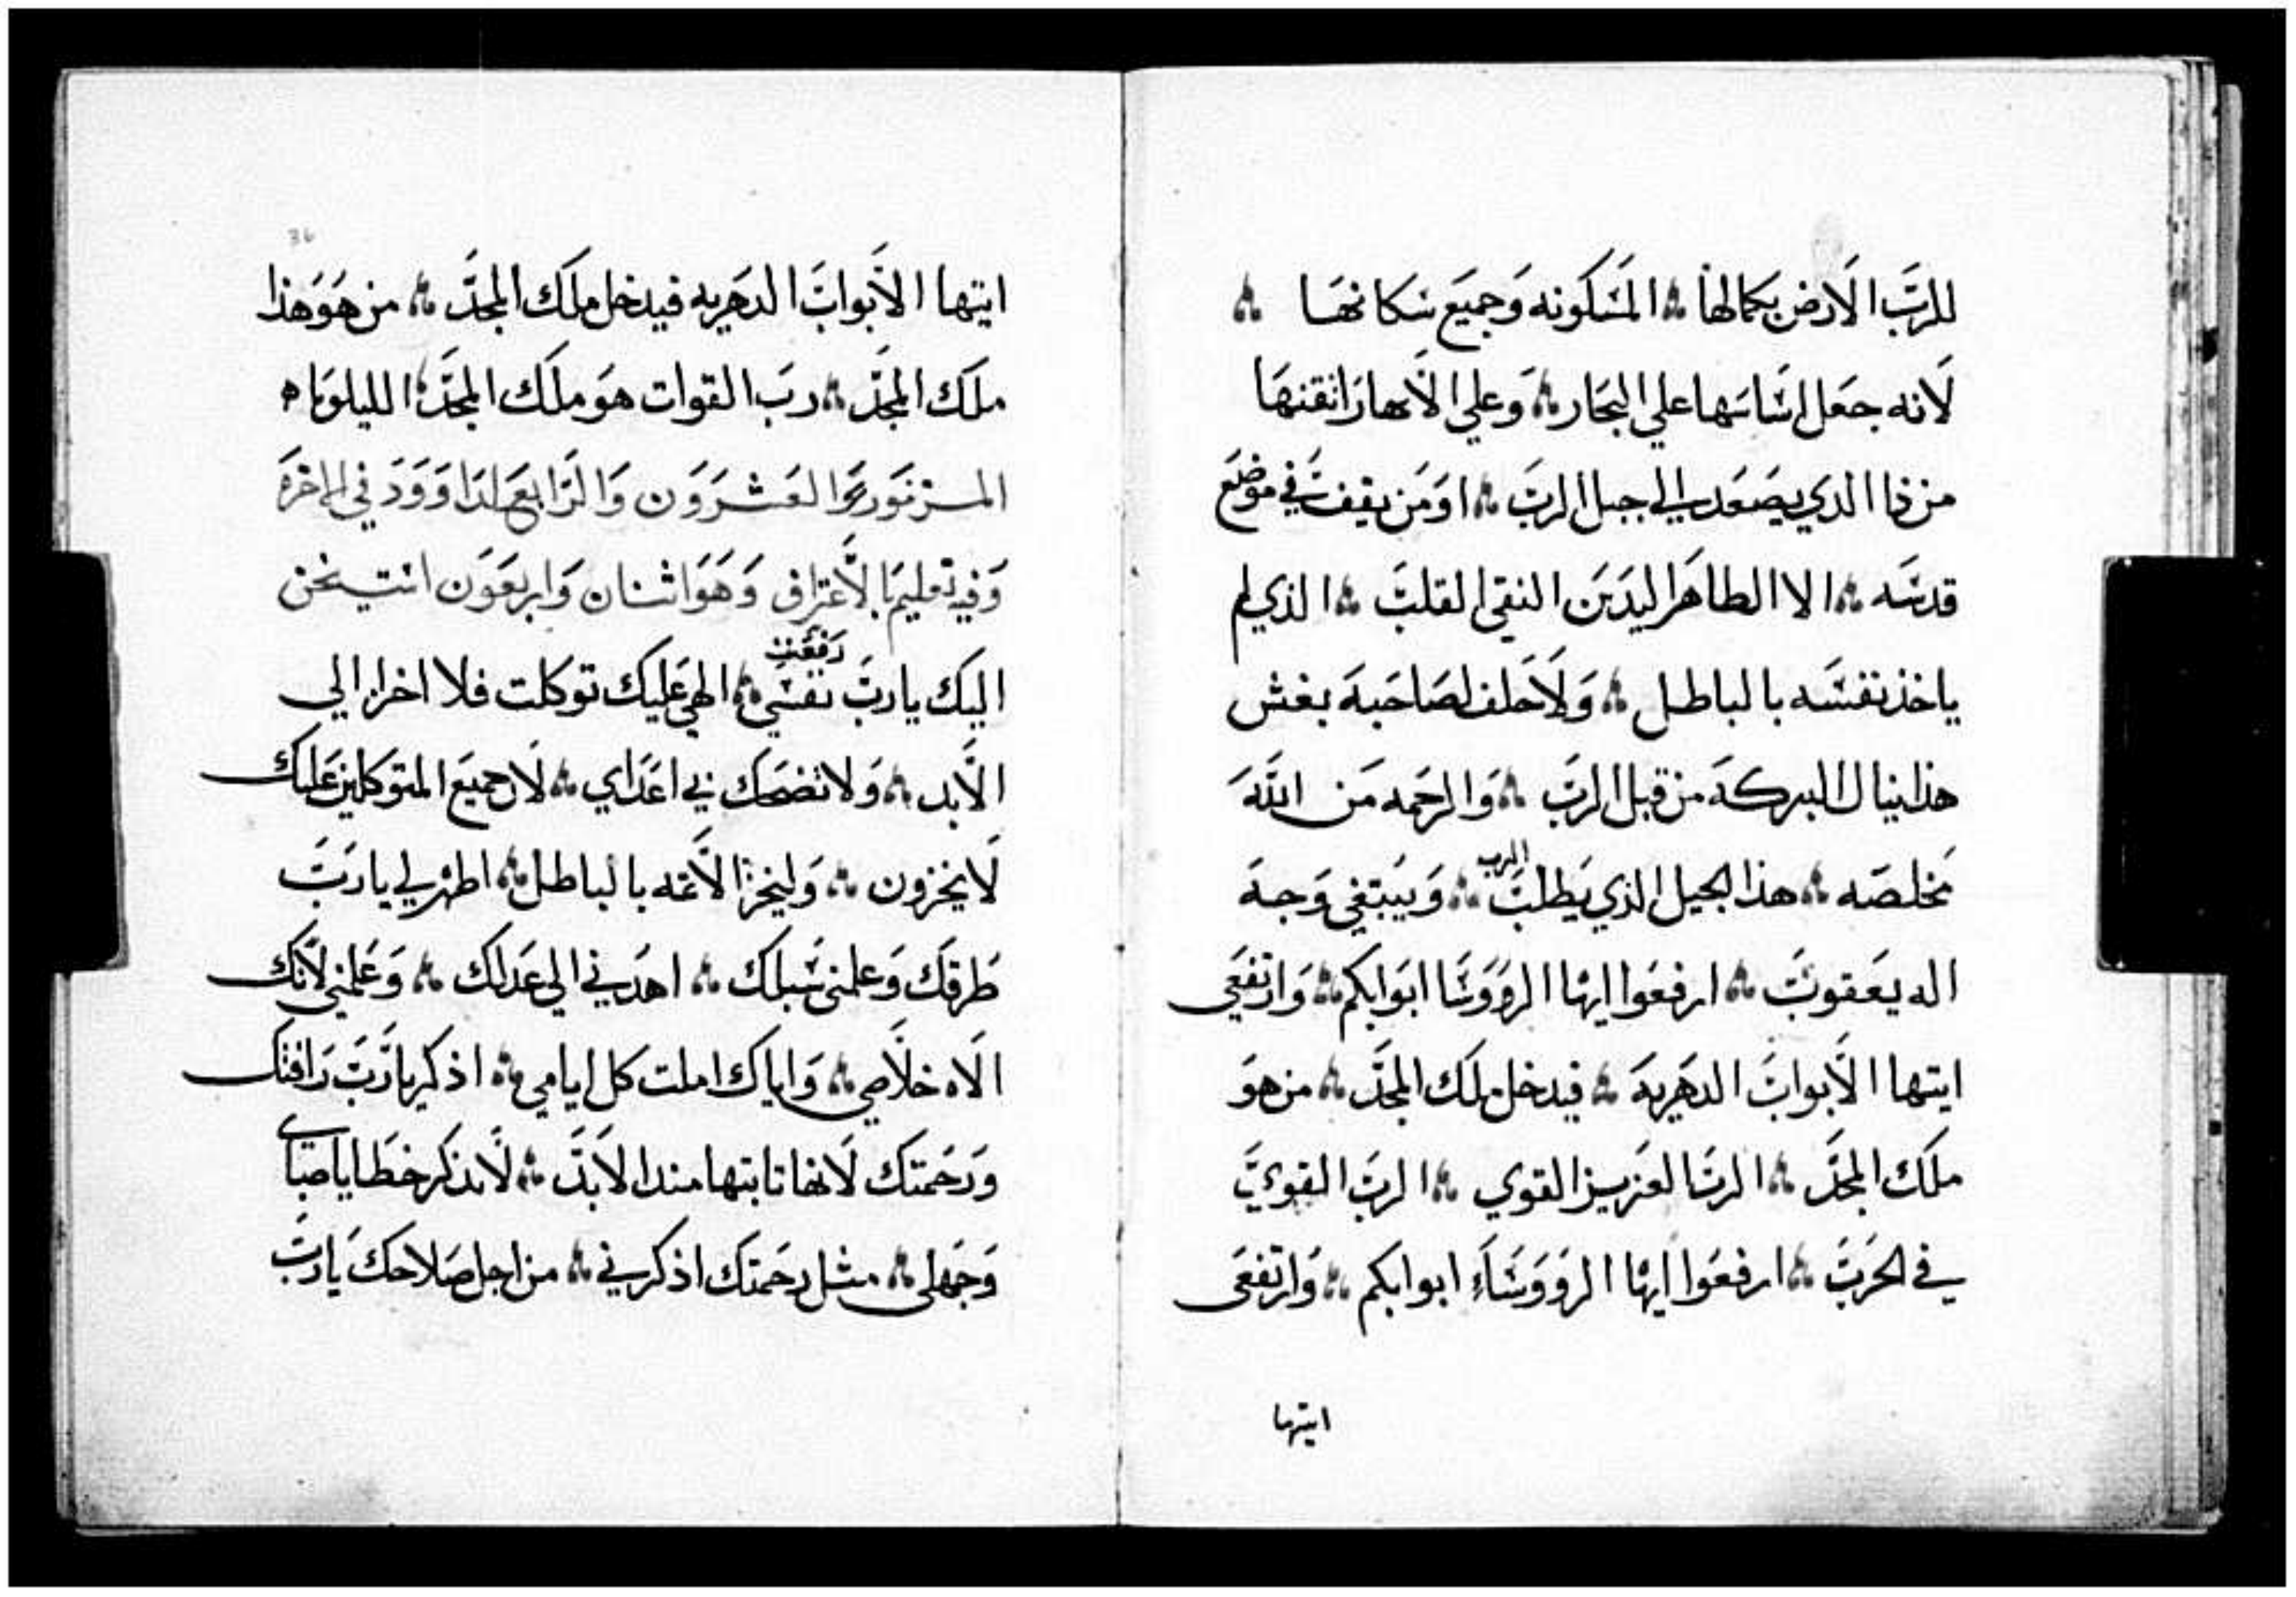 للرَّبَ الاَرض بكمالهَا ؞ المَسَكونه وَجميَع سَكانهَا ؞
لاَنه جعَل اسَاسَها علي البحَار ؞ وَعلي الاَنهار اتقنهَا
من ذا الذي يصَعَد الي جبل الربَ ؞ اوَمَن يقف في موضَع
قدسَه ؞ الا الطاهَر اليدَين النقي القلبَ ؞ الذي لم
ياخذ نفسَه بالباطل ؞ وَلاَحلف لصَاحَبهَ بغش
هذا ينال البركهَ من قبل الربَ ؞ وَالرحَمه مَن اللهَ
مَخلصَه ؞ هذا الجيل الذي يَطلبَ الرب ؞ وَيبتغي وَجهَ
اله يعَقوبَ ؞ ارفعَوا ايهَا الروَوَسَا ابوَابكم ؞ وَارتفعَي
ايتها الاَبوابَ الدهَريهَ ؞ فيدخل ملَك المجدَ ؞ من هوَ
ملَك المجدَ ؞ الربَ العزيز القوي ؞ الربَ القويَ
في الحَربَ ؞ ارفعَوا ايهَا الروَوَسَاَء ابوابكم ؞ وَارتفعَي
ايتها
36
ايتها الاَبوابَ الدهَريه فيدخل ملَك المجدَّ ؞ من هوَ هَذا
ملَك المجدَّ ؞ ربَ القوات هوَ ملَك المجدَّ ؞ الليلويَا ه
المزَمَور الَعَشرَوَن وَالرَابعَ لدَاوَوَدَ في اخرَه
وَفيه تعليمَ بالاَعتراف وَهَوَ اثنان وَاربعَوَن استيخن
اليَك يا ربَ رَفعَت نفسَي ؞ الهي عَليَك توكلت فلا اخزا الي
الاَبد ؞ وَلا تضحَك بي اعَدَاي ؞ لاَن جميعَ المتوَكلين عَليَك
لاَيخزون ؞ وَليخزا الاَثمه بالباطل ؞ اظهر لي يا ربَ
طَرقَك وَعلمني سَبلك ؞ اهدَني الي عَدلك ؞ وَعَلمني لاَنك
الاَه خلاَصي ؞ وَاياك املت كل ايامي ؞ اذكر يا رَبَ رَافتك
وَرحَمتك لاَنها ثابتها منذ الاَبدَ ؞ لاَتذكر خطَايا صبَاي
وَجَهلي ؞ مثل رحَمتَك اذكرني ؞ من اجل صَلاحك يَا ربَ